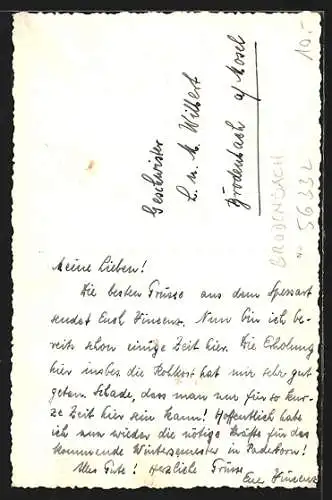 Geschwister
L. u. M. Wilbert
Brodenbach a/Mosel
10.-
BRODENBACH
No 56332
Meine Lieben!
Die besten Grüsse aus dem Spessart
sendet Euch Vincenz. Nun bin ich be-
reits schon einige Zeit hier. Die Erholung
hier insbes. die Rohkost hat mir sehr gut
getan. Schade, dass man nur für so kur-
ze Zeit hier sein kann! Hoffentlich habe
ich nun wieder die nötige Kräfte für das
kommende Wintersemester in Paderborn!
Alles Gute! Herzliche Grüsse
Euer Vincenz